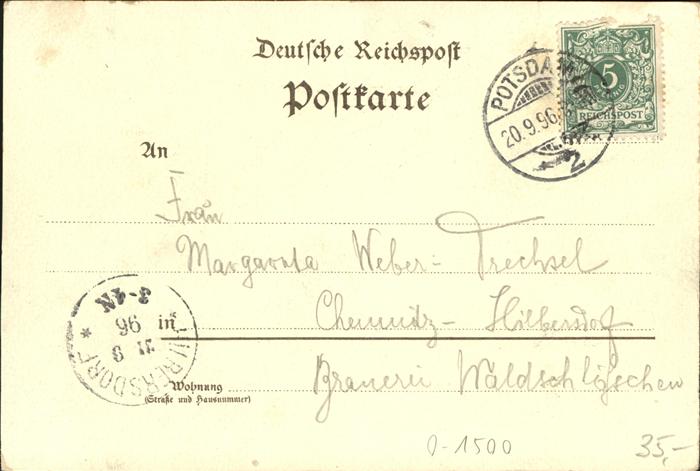 Deutsche Reichspost
Postkarte
5
REICHSPOST
POTSDAM
20.9.96.
2
An
Frau
Margareta Weber-Trechsel
in
Chemnitz-Hilbersdorf
3-4N
96
21 9
HILBERSDORF *
Wohnung
Brauerei Waldschlöschen
(Straße und Hausnummer)
0-1500
35,-